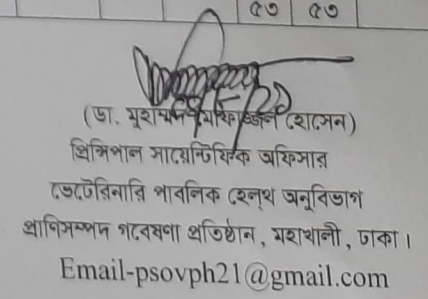 ৫৩ ৫৩
(ডা. মুহাম্মদ হোসেন)
প্রিন্সিপাল সায়েন্টিফিক অফিসার
ভেটেরিনারি পাবলিক হেল্থ অনুবিভাগ
প্রাণিসম্পদ গবেষণা প্রতিষ্ঠান, মহাখালী, ঢাকা।
Email-psovph21@gmail.com